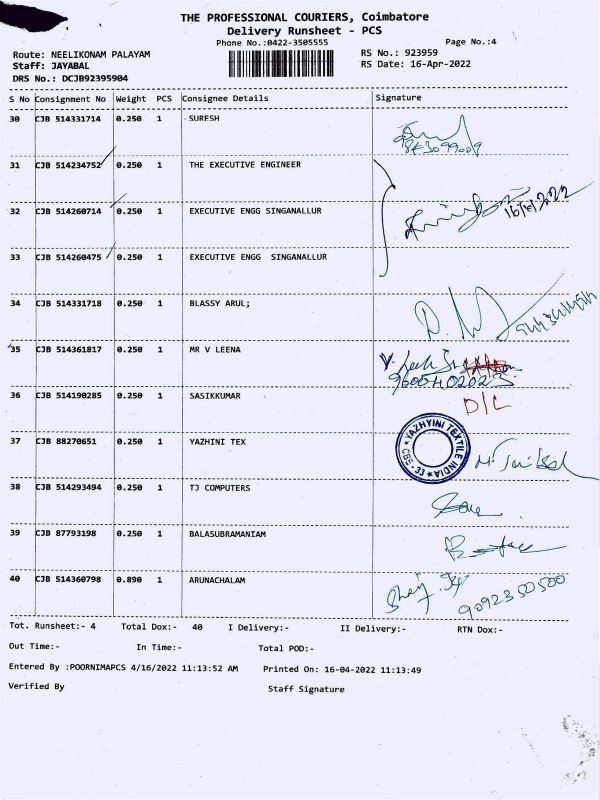 THE PROFESSIONAL COURIERS, Coimbatore
Delivery Runsheet - PCS
Phone No.:0422-3505555
Page No.:4
Route: NEELIKONAM PALAYAM
RS No.: 923959
Staff: JAYABAL
RS Date: 16-Apr-2022
DRS No.: DCJB92395904
S No Consignment No Weight PCS Consignee Details Signature
30 CJB 514331714 0.250 1 SURESH
31 CJB 514234752 0.250 1 THE EXECUTIVE ENGINEER
32 CJB 514260714 0.250 1 EXECUTIVE ENGG SINGANALLUR
33 CJB 514260475 0.250 1 EXECUTIVE ENGG SINGANALLUR
34 CJB 514331718 0.250 1 BLASSY ARUL;
35 CJB 514361817 0.250 1 MR V LEENA
36 CJB 514190285 0.250 1 SASIKKUMAR D/L
37 CJB 88270651 0.250 1 YAZHINI TEX
YAZHYINI TEXTILE INDIA CBE-33
38 CJB 514293494 0.250 1 TJ COMPUTERS
39 CJB 87793198 0.250 1 BALASUBRAMANIAM
40 CJB 514360798 0.890 1 ARUNACHALAM
9092350500
Tot. Runsheet:- 4 Total Dox:- 40 I Delivery:- II Delivery:- RTN Dox:-
Out Time:- In Time:- Total POD:-
Entered By :POORNIMAPCS 4/16/2022 11:13:52 AM Printed On: 16-04-2022 11:13:49
Verified By Staff Signature